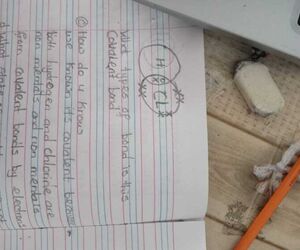 H Cl
What types of bond is this
Covalent bond
c How do u know
we knows its covalent because
both hydrogen and chlorine are
non metals and non metals
form covalent bonds by
what